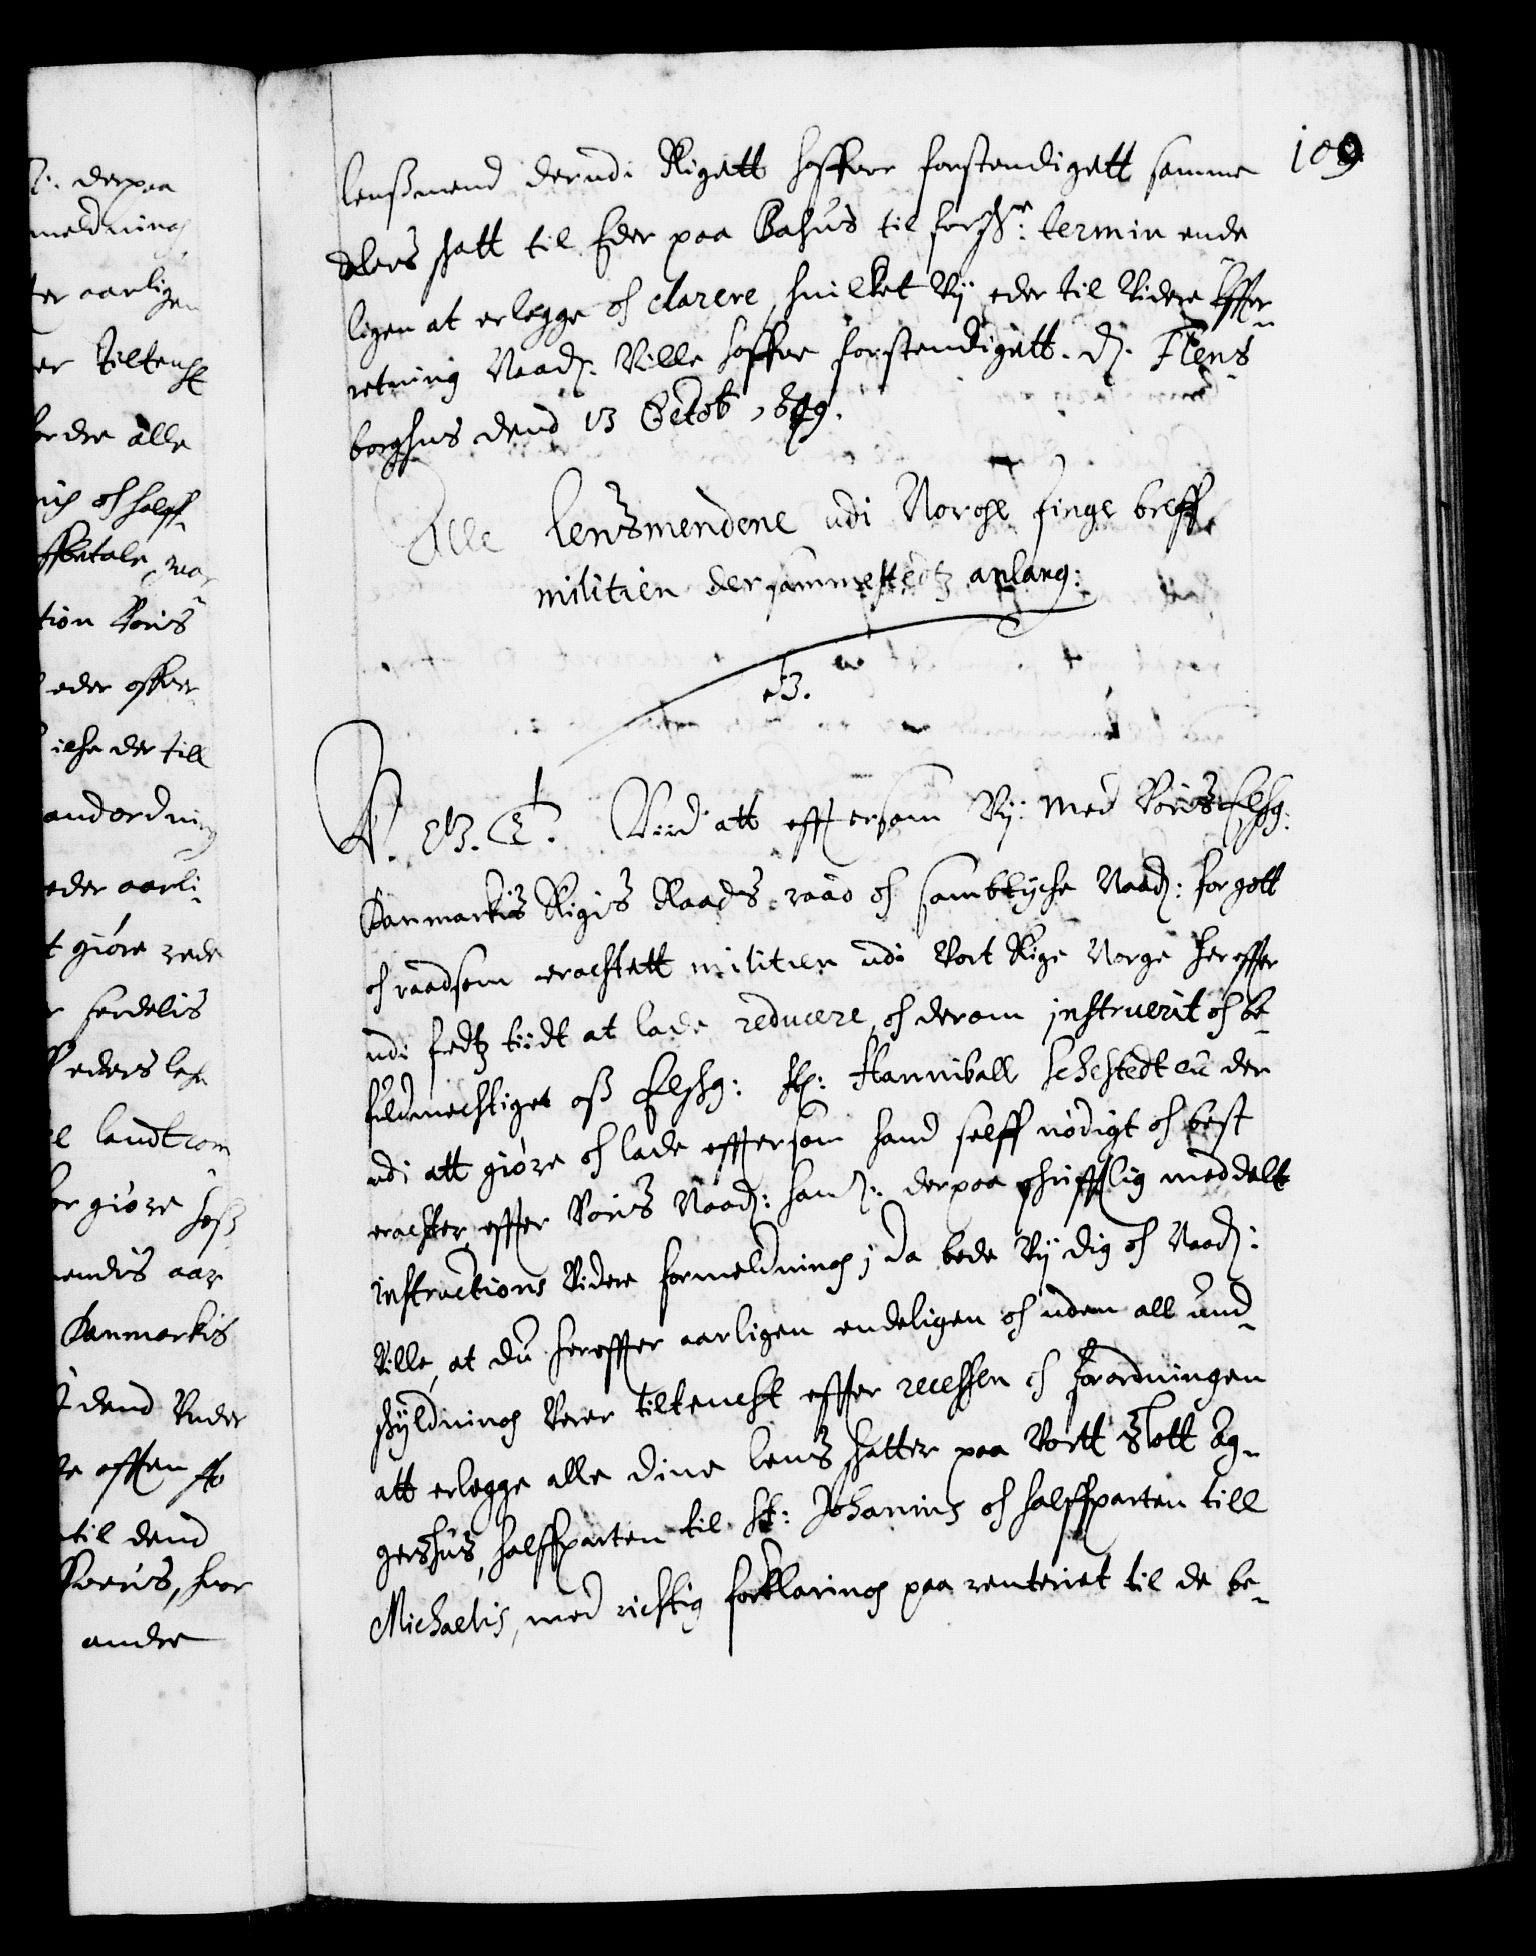 109
lenßmend derudi Rigett haffver forstendigett samme
deres skatt til Eder paa Bahus til forskr: termin ende
ligen at erlegge oc clarere, huilket Vij eder til Videre Effter¬
retning Naad: Ville haffve forstendigett. d: Flens¬
borghus dend 13 Octob
Alle lensmendene udi Norge finge breff
militien dersammestedtz anlang:
V. G. T. Viid att efftersom Vij med Voris Elskg:
Danmarckis Rigis Raads raad oc sambtyche Naad: for gott
oc raadsom erachtett militien udi Vort Rige Norge hereffter
udi fredtz tiidt at lade reducere, oc derom instruerit oc be¬
fuldmechtiget oß Elskg: Hr: Hanniball Sehestedt det der
udi att giøre oc lade eftersom hand selff nødigt oc best
erachter effter Voris Naad: hannem derpaa skrifftlig meddelt
instructions Videre formelding; Da bede Vij dig oc Naad:
Ville, at du hereffter aarligen endeligen oc uden all und¬
skyldning Verer tiltenckt effter recessen oc Forordningen
att erlegge alle dine lens skatter paa Vortt Slott Ag¬
gershus, halffparten til St: Johannis oc halffparten till
Michaelis, med richtig forklaring paa renteriet til de be¬
derpaa
meldning
aarligen
er tiltenckt
alle
oc halff¬
betale
tion Voris
eder offver
icke der till
andordning
eder aarli¬
t giøre rede
serdelis
eders lehn
landtcom
giøre hoß
aar
Danmarkis
dend Under
til dend
andre